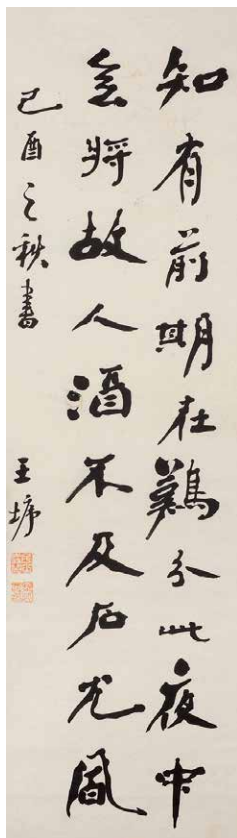 知有前期在難分此夜中
無將故人酒不及石尤風
己酉之秋書
王垿